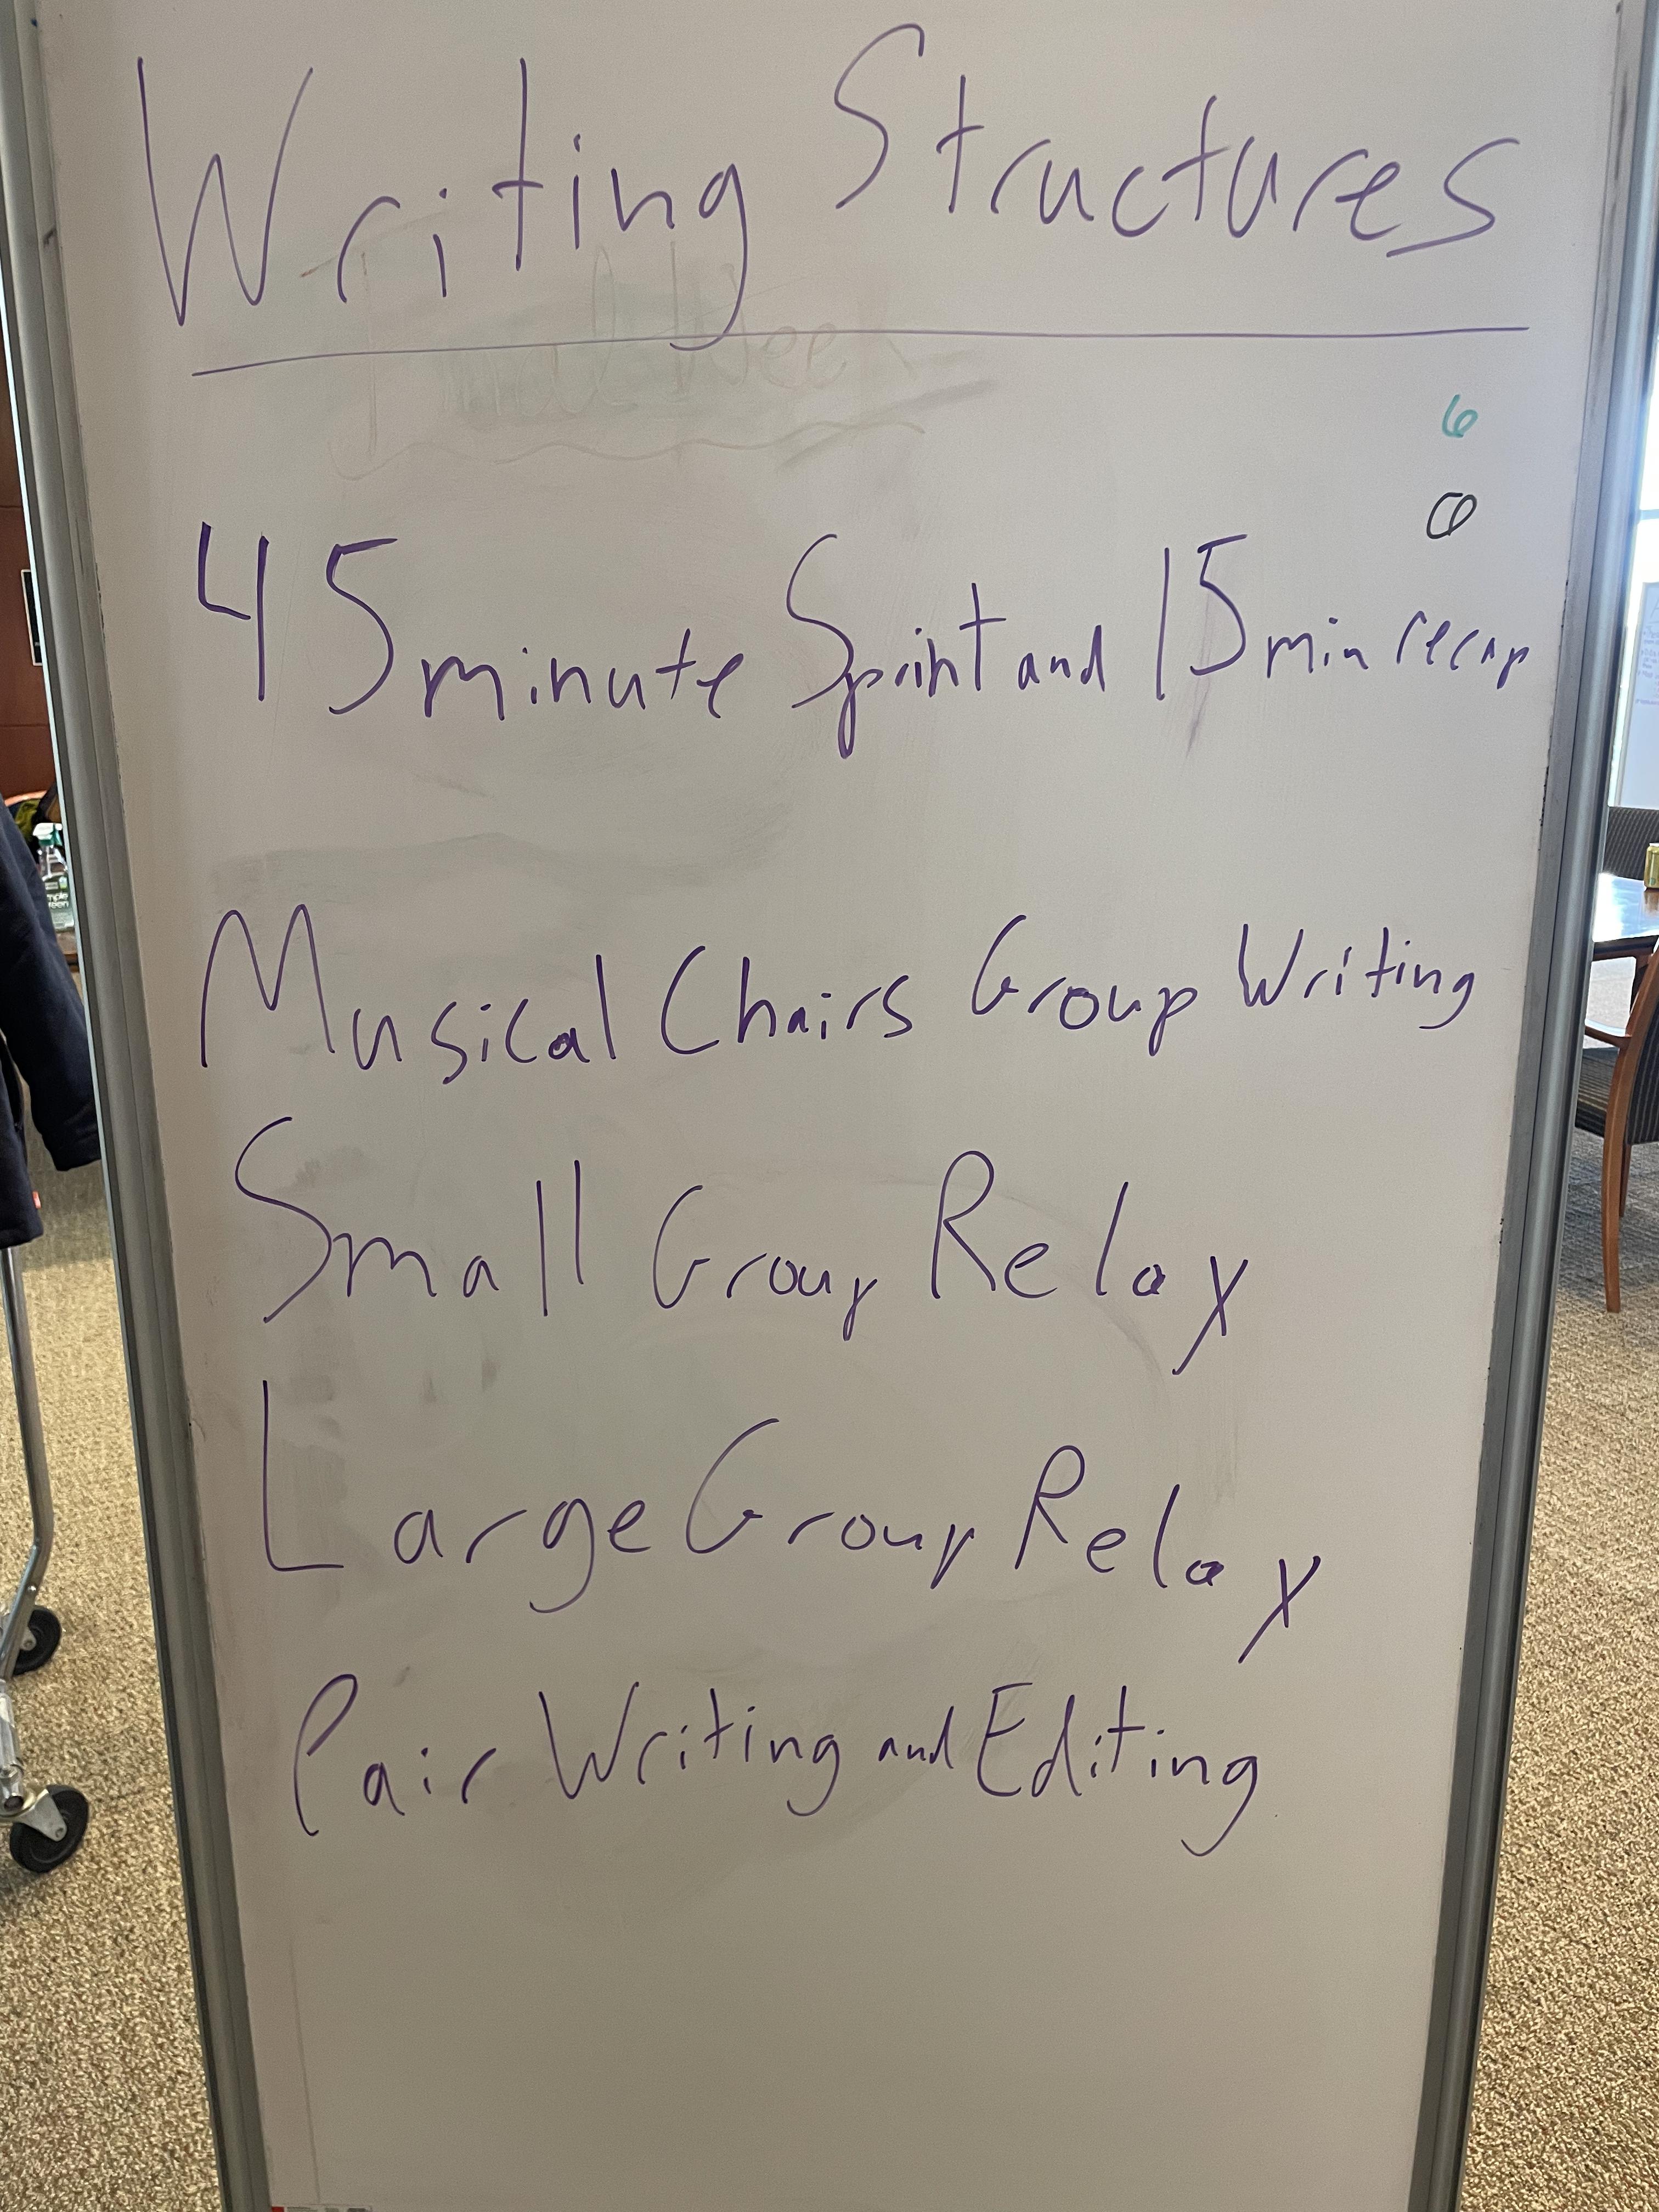 Writing Structures
6
45 minute Sprint and 15 min recap
Musical Chairs Group Writing
Small Group Relax
Large Group Relax
Pair Writing and Editing